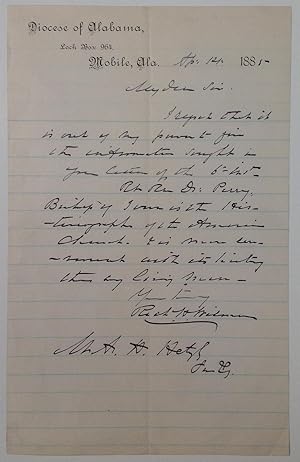 Diocese of Alabama,
Lock Box 961.
Mobile, Ala. Ap. 14. 1885
My dear Sir.
I regret that it
is out of my power to give
the information sought in
your letter of the 5th inst.
Rt. Rev. Dr. Perry,
Bishop of Iowa is the His-
-toriographer of the American
Church. He is more con-
-versant with its history
than any living man -
Yours truly
Rich. H. Wilmer
Mr. H. H.